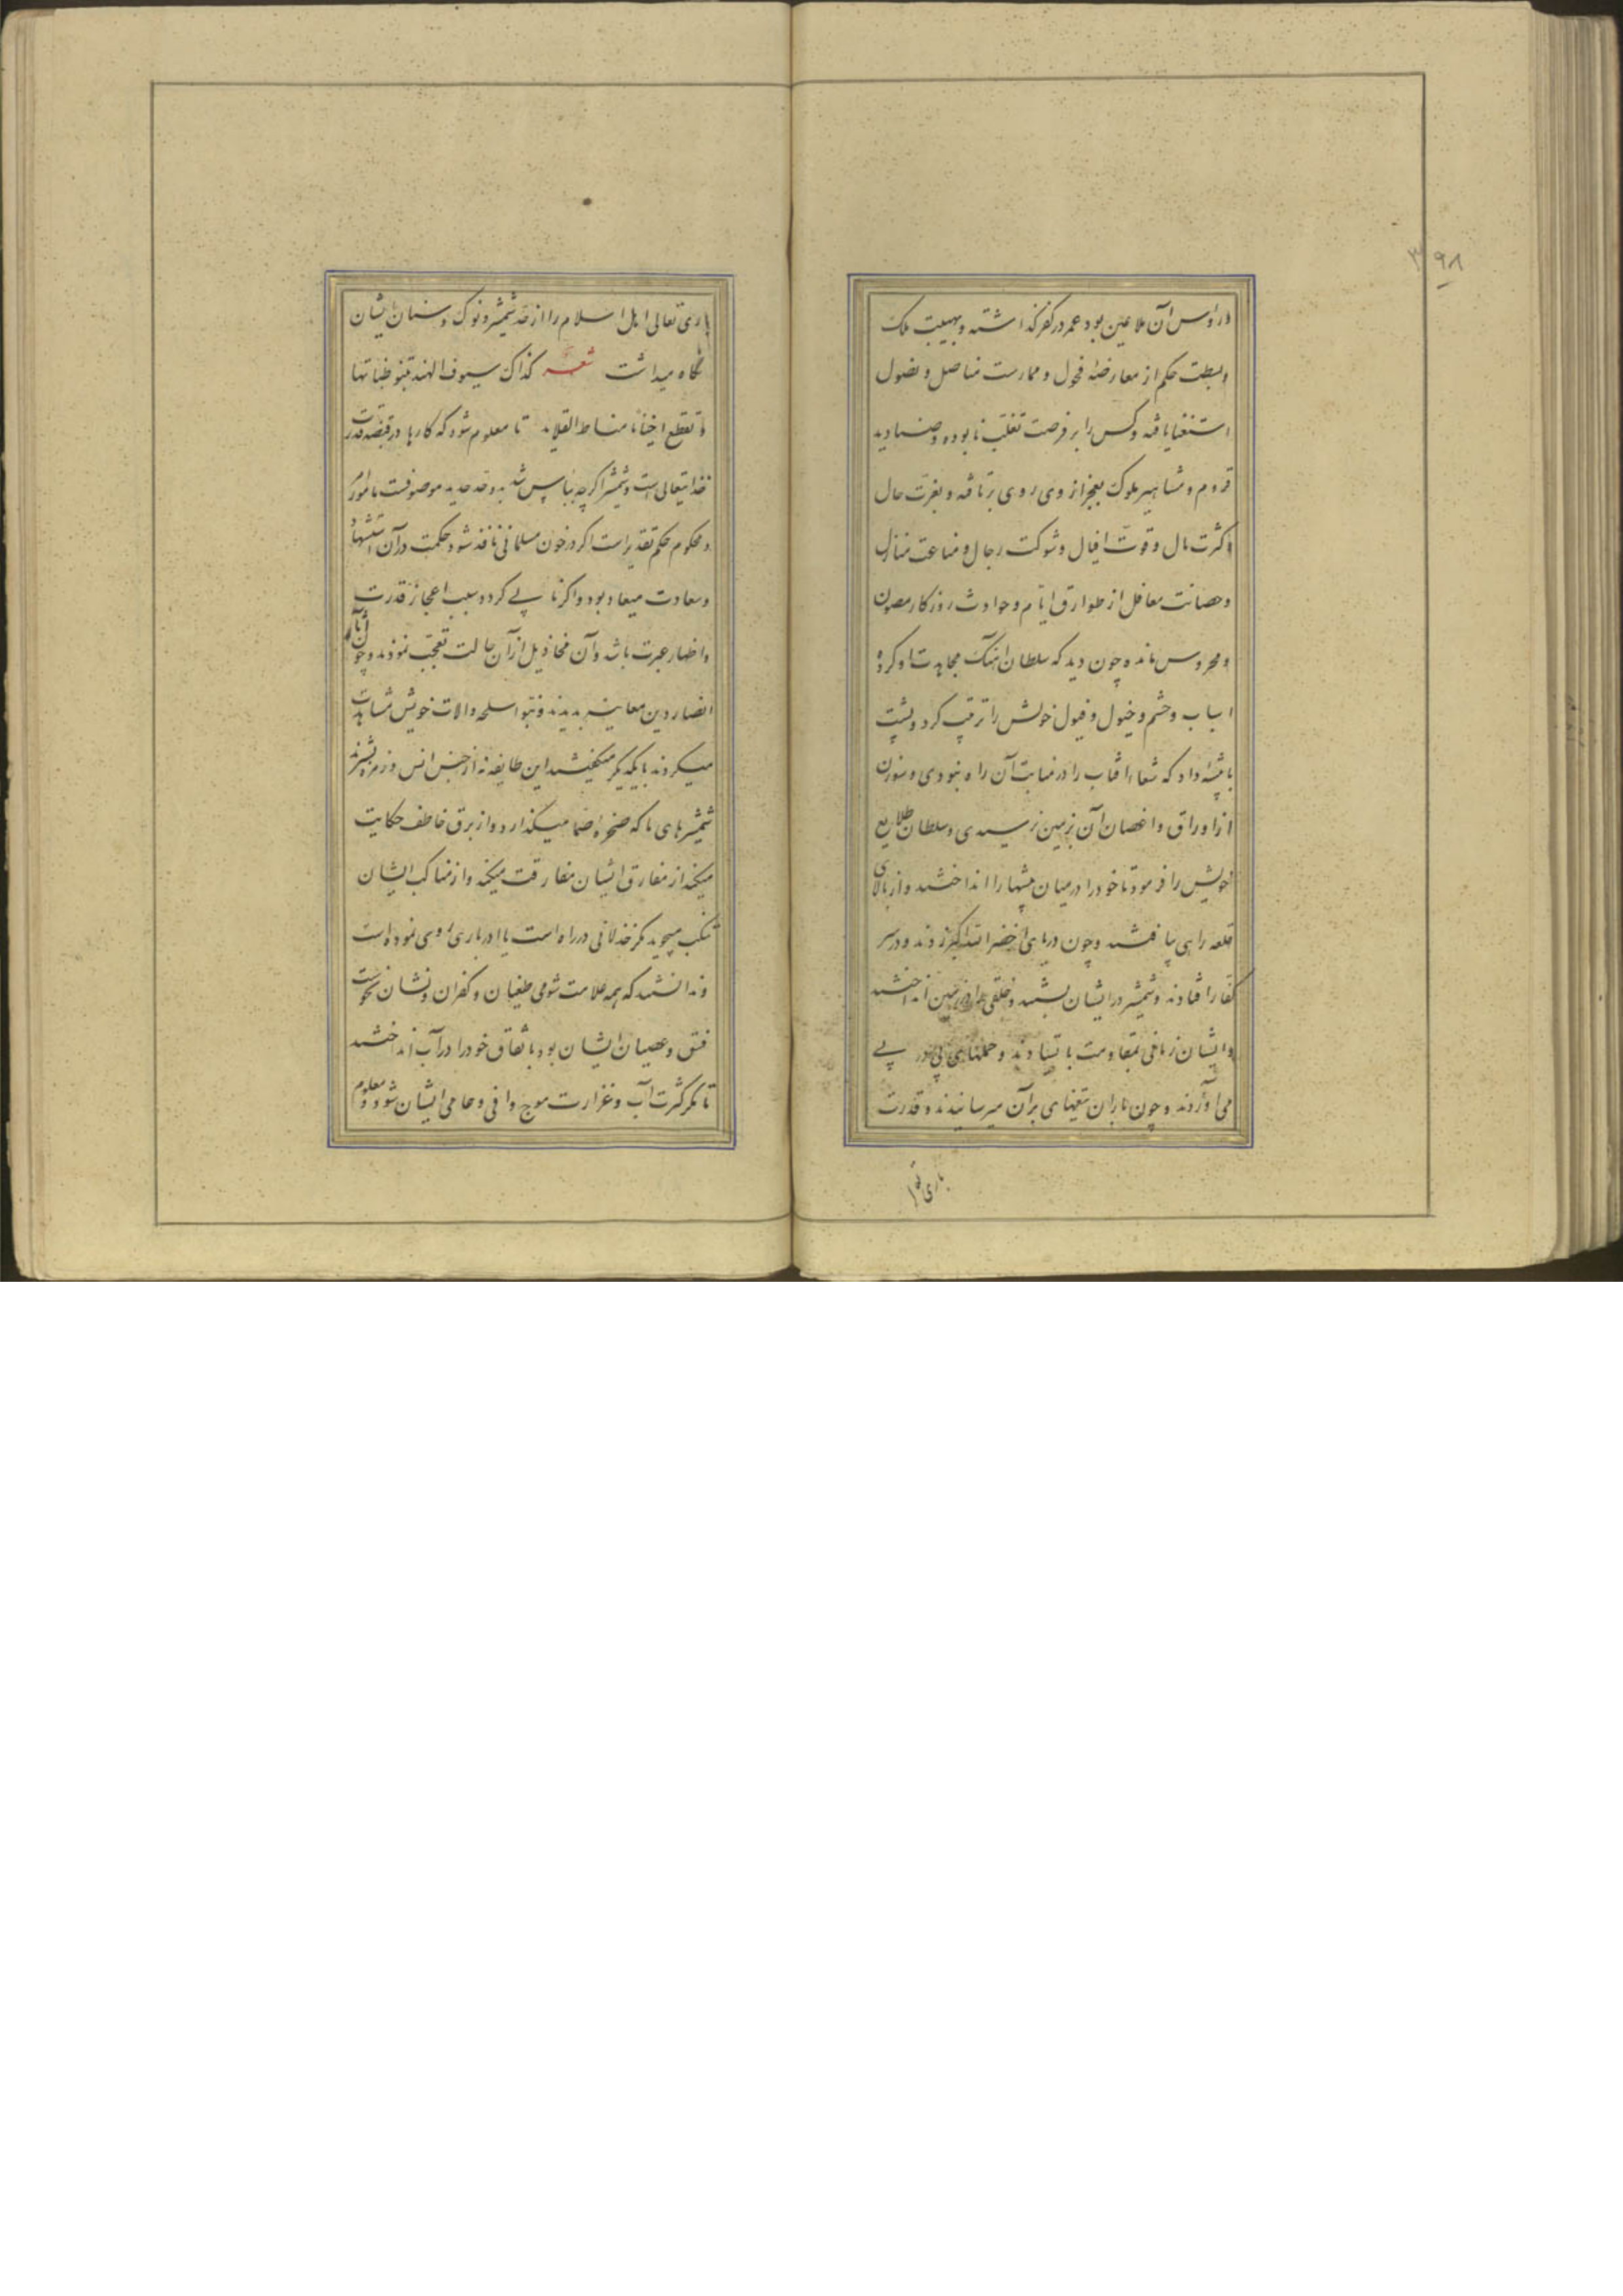 ۳۹۸
و رؤس آن ملاعین بود عمر در کفر گذاشته و بهیبت ملک
و بسطت حکم از معارضه فحول و ممارست مناصل و نصول
استغنا یافته و کس را بر فرصت تغلب نابوده و صنادید
قروم و مشاهیر ملوک بعجز از وی روی برتافته و بعزت حال
و کثرت مال و قوت افیال و شوکت رجال و مناعت منازل
و حصانت معاقل از طوارق ایام و حوادث روزکار مصون
و محروس مانده چون دید که سلطان آهنک مجاهدت او کرده
اسباب و حشم و خیول و فیول خویش را ترتیب کرد و پشت
با بیشه داد که شعاع افتاب را در منابت آن راه نبودی و سوزن
از اوراق و اغصان آن بزمین نرسیدی و سلطان طلایع
خویش را فرمود تا خود را در میان بیشها انداختند و از بالای
قلعه راهی یافتند و چون دریای اخضر الله اکبر زدند و در سر
کفار افتادند و شمشیر در ایشان بستند و خلقی را در زمین انداختند
و ایشان زمانی بمقاومت باستادند و حملهای پی در پی
می آوردند و چون باران تیغهای بران میرسانیدند و قدرت
باری تعا
باری تعالی اهل اسلام را از حد شمشیر و نوک و سنان ایشان
نگاه میداشت شعر کذاک سیوف الهند تنبو ظباتها
و تقطع احیانا مناط القلاید تا معلوم شود که کارها در قبضه قدرت
خدایتعالی است و شمشیر اگر چه بباس شدید و حد حدید موصوفست مامور امر
و محکوم حکم تقدیر است اکر در خون مسلمانی نافذ شود حکمت در آن استشهاد
و سعادت میعاد بود و اکر نابی کردد سبب اعجاز قدرت
و اظهار عبرت باشد و آن مخاذیل از آن حالت تعجب نمودند و چون آثار
انصار دین معاینه بدیدند و نبو اسلحه و الات خویش مشاهدت
میکردند با یکدیگر میکفتند این طایفه نه از جنس انس و زمره بشرند
شمشیرهای ما که صخره صما میکذارد و از برق خاطف حکایت
میکند از مفارق ایشان مفارقت میکند و از مناکب ایشان
تنکب میجوید مکر خذلانی در راه است یا ادباری روی نموده است
و ندانستند که همه علامت شومی طغیان و کفران و نشان نحوست
فسق و عصیان ایشان بود باتفاق خود را در آب انداختند
تا مکر کثرت آب و غزارت موج واقی و حامی ایشان شود و معلوم